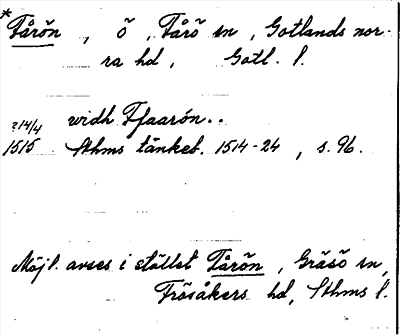 * Fårön, ö, Fårö sn, Gotlands nor-
ra hd, Gotl. l.
?14/4 widh Ffaarön..
1515 Sthms tänkeb. 1514-24, s. 96.
Möjl. avses i stället Fårön, Gräsö sn,
Frösåkers hd, Sthms l.